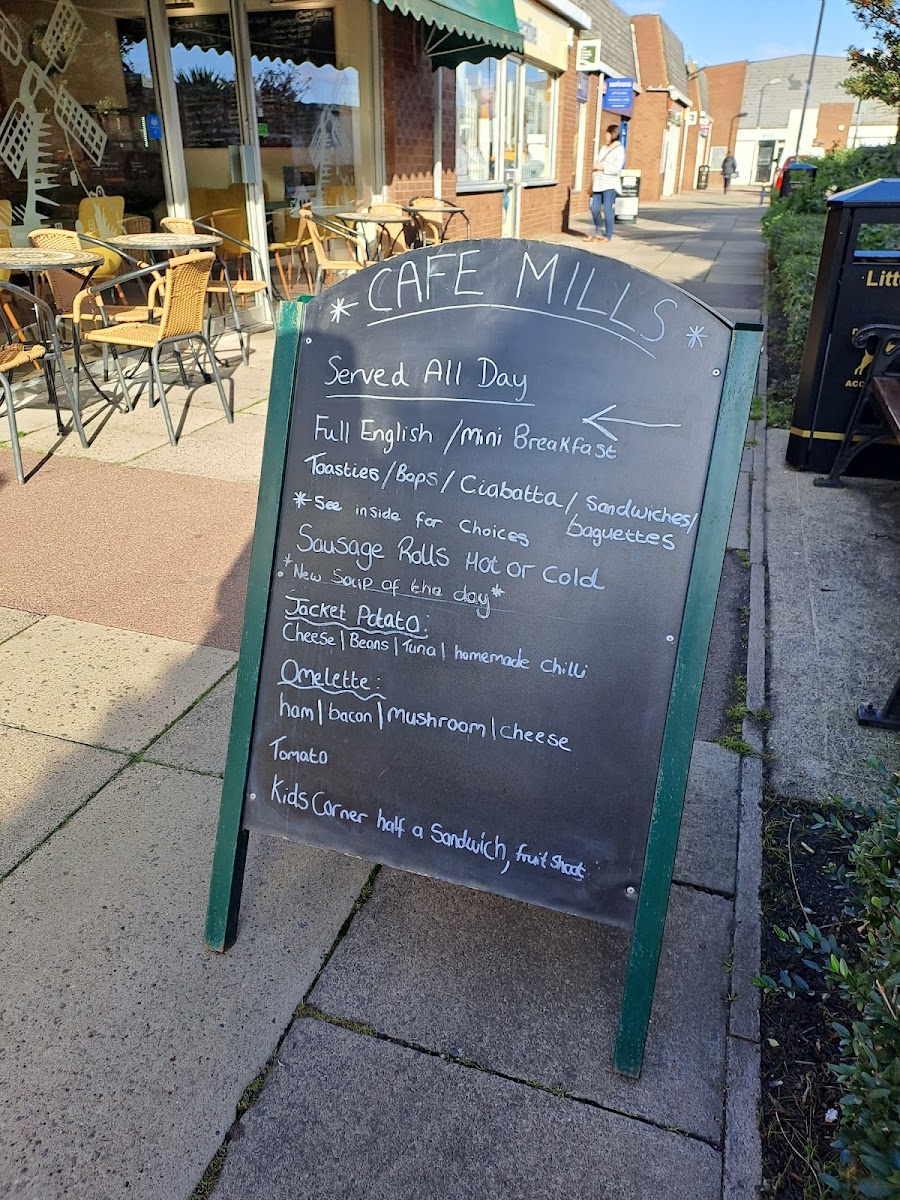 * CAFE MILLS *
Served All Day
Full English / mini Breakfast
Toasties/Baps/ Ciabatta/ Sandwiches/
baguettes
* See inside for Choices
Sausage Rolls Hot or Cold
*New Soup of the day*
Jacket Potato:
Cheese | Beans | Tuna | homemade Chilli
Omelette:
ham | bacon | mushroom | cheese
Tomato
Kids Corner half a Sandwich, fruit shoot
Litt